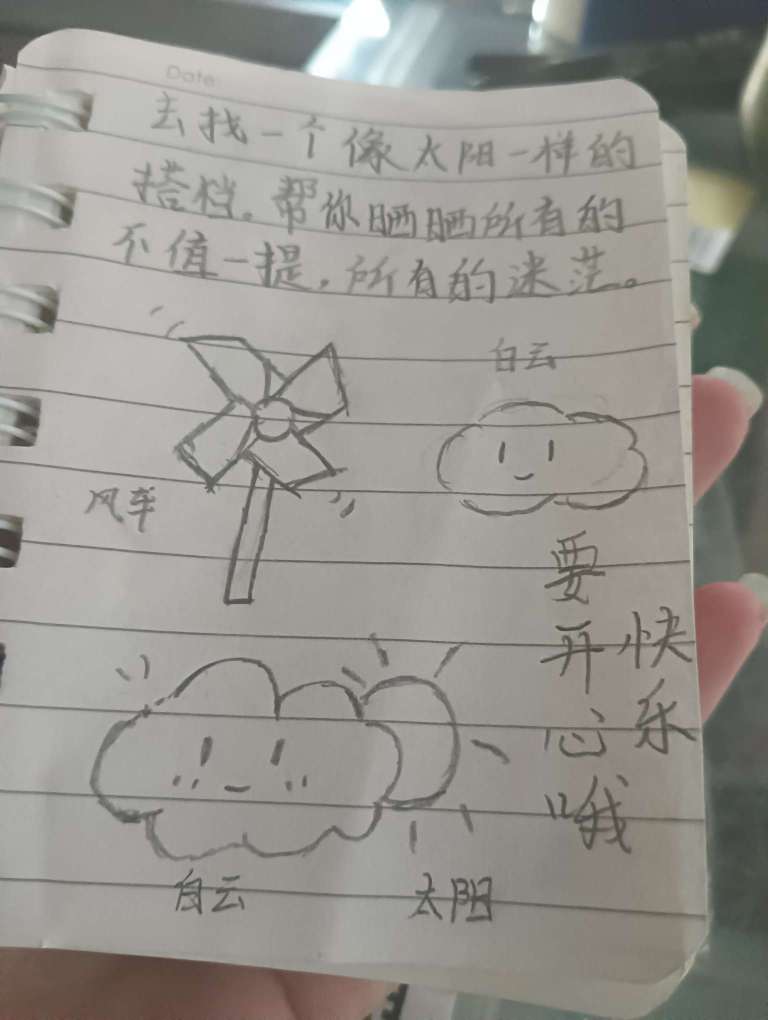 Date:
去找一个像太阳一样的
搭档。帮你晒晒所有的
不值一提，所有的迷茫。
白云
风车
要开心哦
快乐
白云
太阳